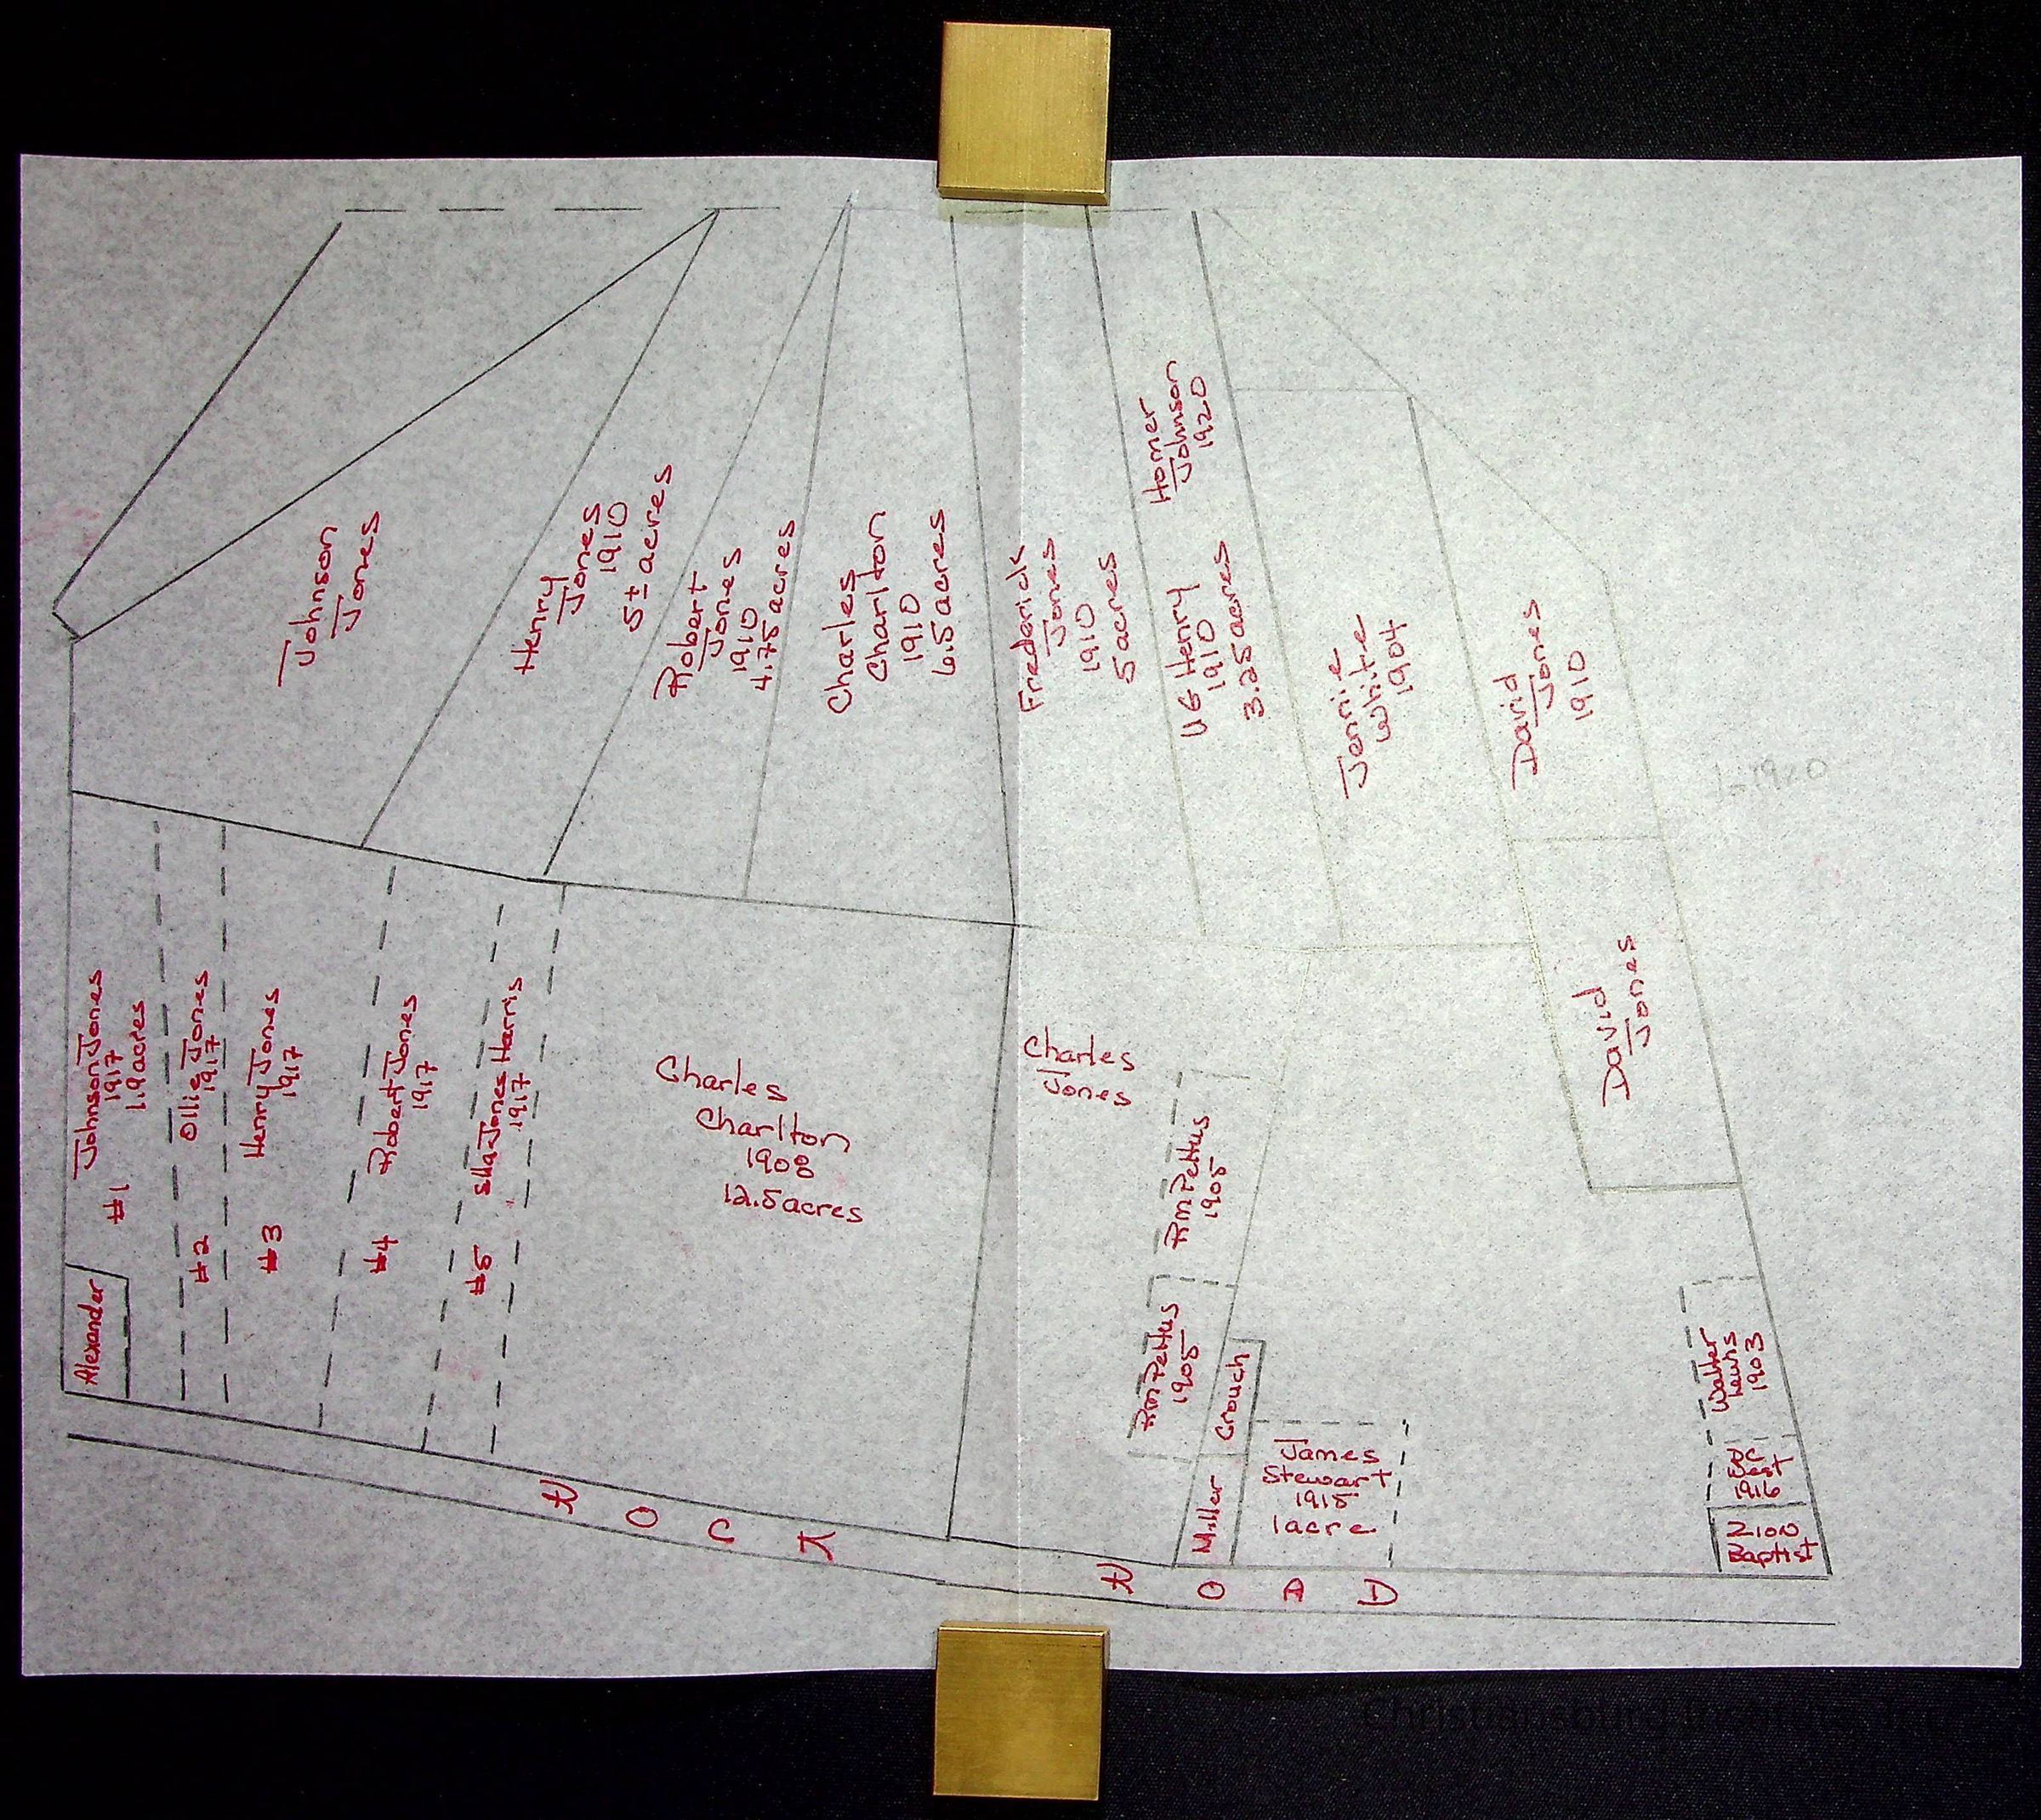 Johnson
Jones
Henry
Jones
1910
5± acres
Robert
Jones
1910
4.75 acres
Charles
Charlton
1910
6.5 acres
Frederick
Jones
1910
5 acres
Homer
Johnson
1920
UG Henry
1910
3.25 acres
Jennie
White
1904
David
Jones
1910
David
Jones
Johnson Jones
1917
1.9 acres
#1
Alexander
Ollie Jones
1917
#2
Henry Jones
1917
#3
Robert Jones
1917
#4
Jones Harris
1917
#5
Charles
Charlton
1908
12.5 acres
Charles
Jones
RM Pettus
1905
RM Pettus
1905
Crouch
Miller
James
Stewart
1915
1 acre
Walter
Lewis
1903
1916
Zion
Baptist
ROCK
ROAD